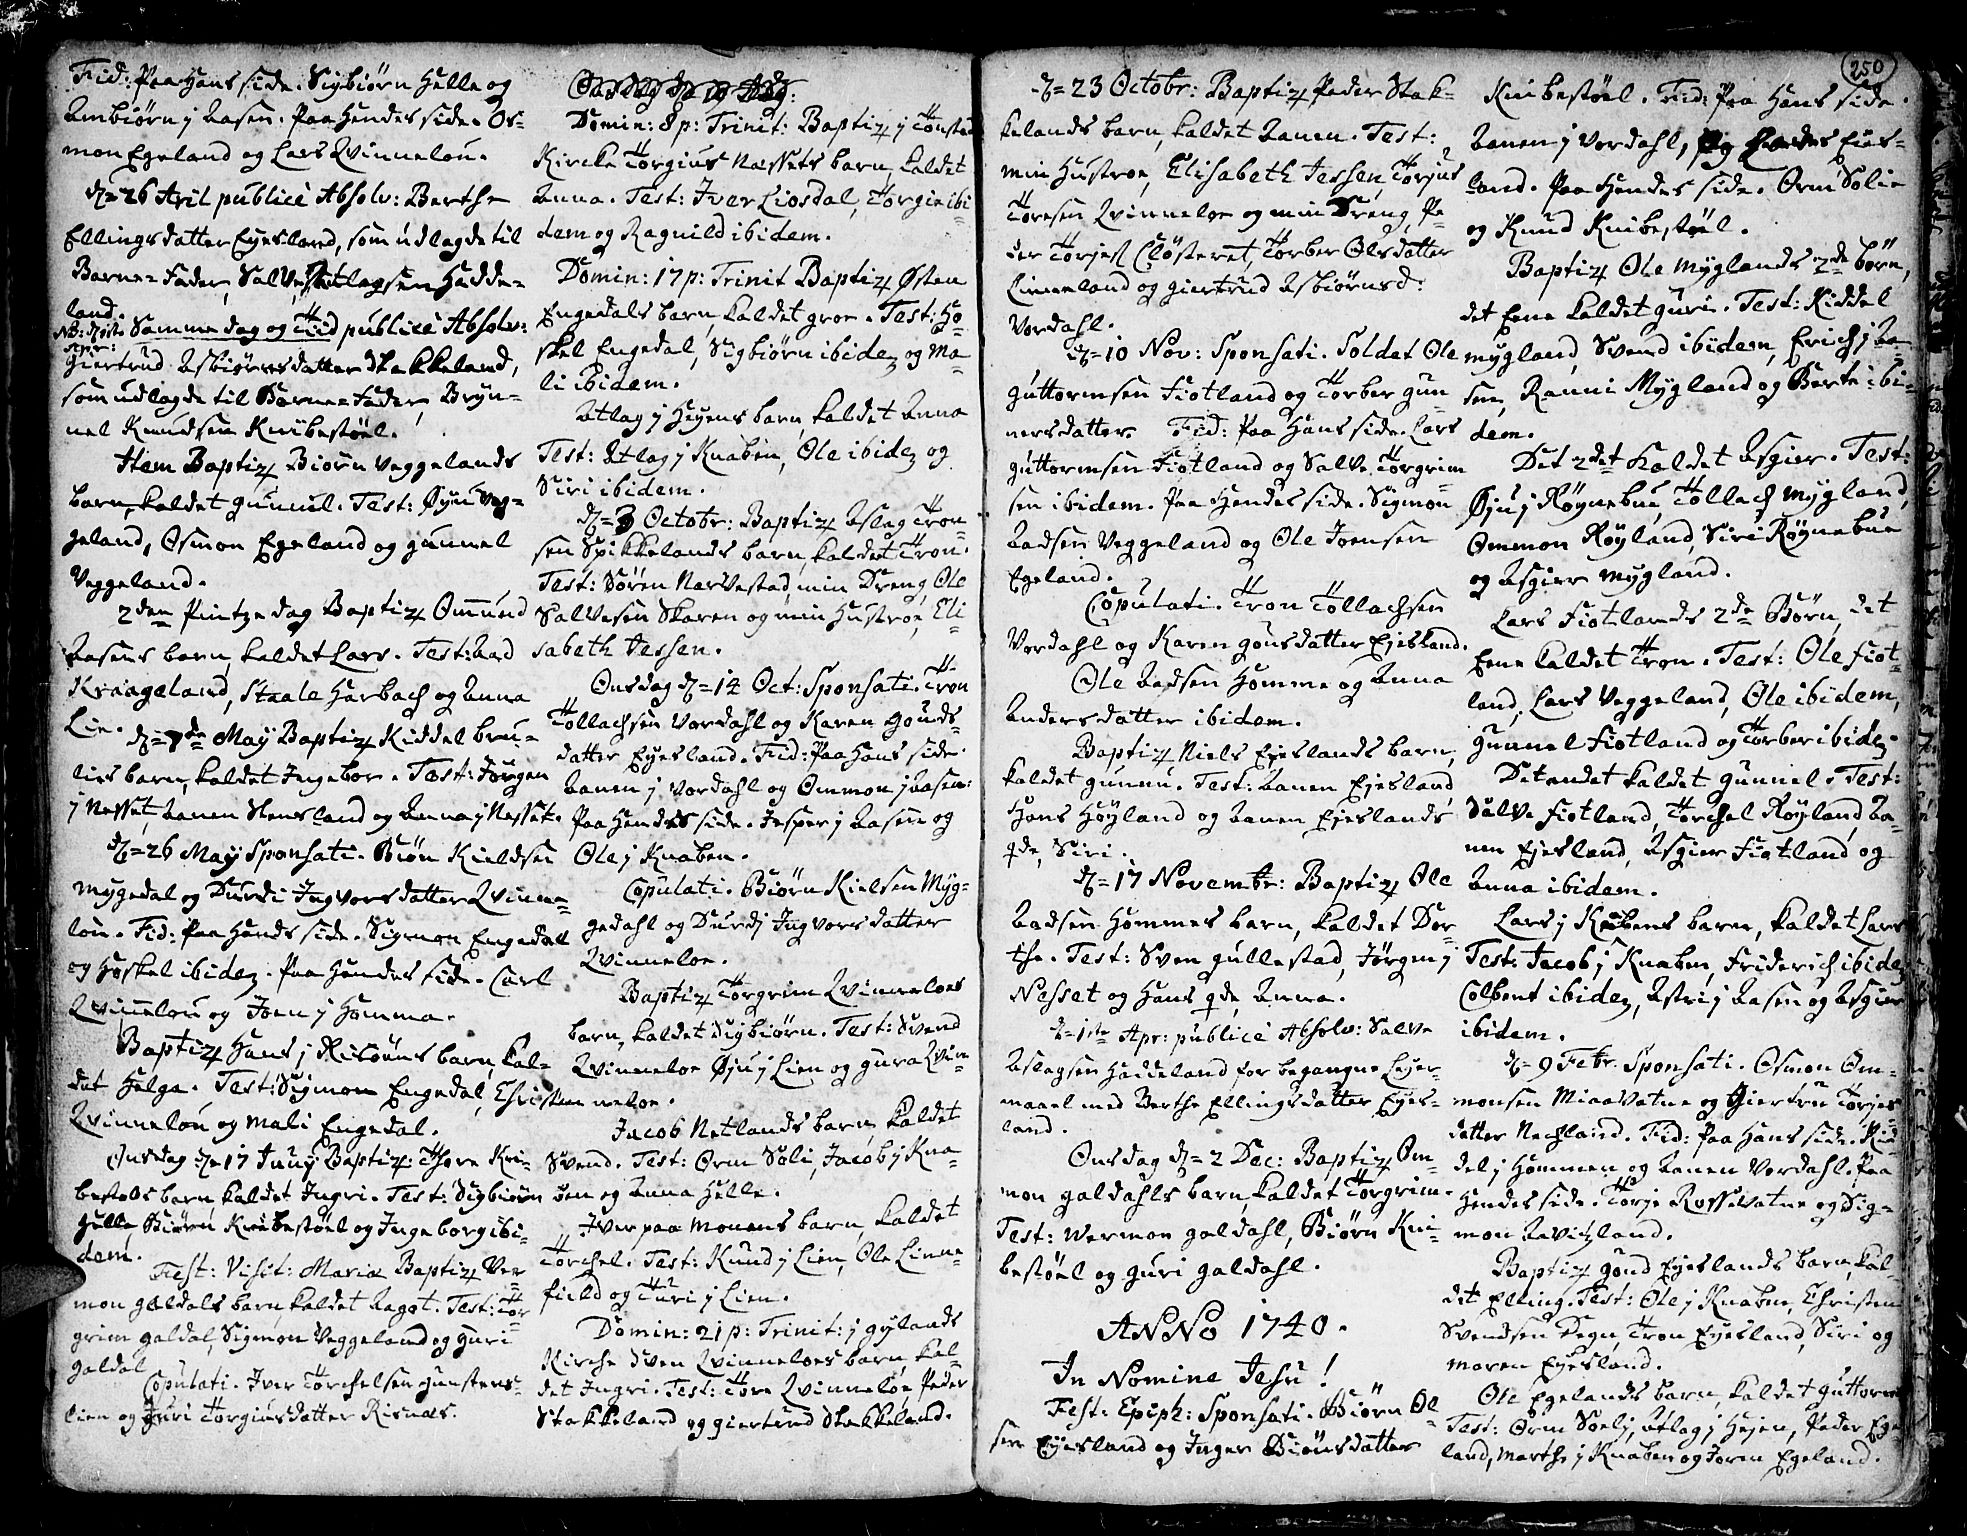 Fid: Paa Hans side. Sigbiørn Helle og
Aanbiørn j Aasen. Paa Hendes side. Os-
mon Egeland og Lars Qvinnelou.
d. 26 Aril publicè Absolv: Berthe
Ellingsdatter Eyesland, som udlagde til
Barne-Fader, Salve Atlagsen Hadde-
land.
Samme dag og Tiid publicè Absolv:
Giertrud Asbiørnsdatter Stakkeland,
som udlagde til Barne-Fader, Bryn-
nel Knudsen Knibestøel.
Item Baptiz Biørn Veggelands
barn, kaldet Gunnul. Test: Øyu Veg-
geland, Osmon Egeland og Gunnel
Veggeland.
2den Pintze dag Baptiz Omund
Aasens barn kaldet Lars. Test: Aad
Kraageland, Staale Harbach og Anna
Lie.
d. 7de May Baptiz Kiddel brau-
lies barn, kaldet Ingebor. Test: Jørgen
j Nesset, Aanen Stensland og Anna j Nesset.
d. 26 May Sponsati. Biøn Kieldsen
Mygedal og Durdi Ingvorsdatter Qvinne-
lou. Fid: Paa Hands side. Sigmon Engedal
og Høskel ibidem. Paa Hendes side. Carl
Qvinnelou og Joen j Homme.
Baptiz Hans j Risøuns barn, kal-
det Helge. Test: Sigmon Engedal, Christen
Qvinnelou og Mali Engedal.
Onsdag d. 17 Juny Baptiz Thore Kni-
bestøls barn kaldet Ingri. Test: Sigbiørn
Helle, Biørn Knibestøel og Ingeborg ibi-
dem.
Fest: Visit: Mariæ Baptiz Ver-
mon Galdals barn, kaldet Aagot. Test: Tor-
grim Galdal, Sigmon Veggeland og Guri
Galdal
Copulati. Iver Torchelsen Gunsters-
lien og Guri Torgiusdatter Risnes.
Domin: 8 p: Trinit: Baptiz j Tonstad
Kircke Torgius Nassets barn, kaldet
Anna. Test: Iver Liosdal, Torgie ibi-
dem og Ragnild ibidem.
Domin: 17 p: Trinit Baptiz Østen
Engedals barn kaldet Groe. Test: Hø-
skel Engedal, Sigbiørn ibidem og Ma-
li ibidem.
Atlag j Heyens barn, kaldet Anna
Test: Atlag j Knaben, Ole ibidem og
Siri ibidem.
d. 3 Octobr: Baptiz Aslag Tron-
sen Spikkelands barn, kaldet Tron.
Test: Søren Narvestad, min Dreng, Ole
Salvesen Skaren og min Hustroe, Eli-
sabeth Jessen.
Onsdag d. 14 Oct: Sponsati. Tron
Tollachsen Vordahl og Karen Gouds-
datter Eyesland. Fid: Paa Hans side
Aanen j Vordahl og Ommon j Aasen:
Paa Hendes side. Jesper j Aasen og
Ole j Knaben.
Copulati. Biørn Kielsen Myg-
gedahl og Durdj Ingvorsdatter
Qvinneloe.
Baptiz Torgrim Qvinneloes
barn, kaldet Sigbiørn. Test: Svend
Qvinneloe Øyu j Lien og Gura Qvin-
neloe.
Jacob Netlands barn, kaldet
Svend. Test: Orm Søli, Jacob j Kna-
ben og Anna Helle.
Iver paa Monens barn, kaldet
Torchel. Test: Knud j Lien, Ole Linne-
field og Turi j Lien.
Domin: 21 p: Trinit: j Gylands
Kirche Sven Qvinneloes barn, kal-
det Ingri. Test: Tore Qvinneloe, Peder
Stakkeland og Giertrud Stakkeland.
250
d. 23 Octobr: Baptiz Peder Stak-
kelands barn, kaldet Aanen. Test:
min Hustroe, Elisabeth Jessen, Torjus
Toresen Qvinneloe og min Dreng, Pe-
der Torjes Cløsteret, Torber Olsdatter
Linneland og Giertrud Asbiørnsd:
Vordahl.
d. 10 Nov: Sponsati. Soldat Ole
Guttormsen Fiotland og Torber Gun-
nersdatter. Fid: Paa Hans side. Lars
Guttormsen Fiotland og Salve Torgrim-
sen ibidem. Paa Hendes side. Sigmon
Aadsen Veggeland og Ole Joensen
Egeland.
Copulati. Tron Tollachsen
Vordahl og Karen Gousdatter Ejesland.
Ole Aadsen Homme og Anna
Andersdatter ibidem.
Baptiz Niels Ejeslands barn,
kaldet Gunnu. Test: Aanen Ejesland
Hans Høyland og Aanen Ejeslands
qde, Siri.
d. 17 Novembr: Baptiz Ole
Aadsen Hommes barn, kaldet Dor-
the. Test: Sven Gullestad, Jørgen j
Nesset og Hans qde, Anna.
d. 1ste Apr: publicè Absolv: Salve
Aslagsen Haddeland for begangne Leyer-
maael med Berthe Ellingsdatter Eyes-
land.
Onsdag d. 2 Dec: Baptiz Om-
mon Galdahls barn, kaldet Torgrim.
Test: Wermon Galdahl, Biørn Kni-
bestøel og Guri Galdahl.
ANNO 1740.
In Nomine Jesu!
Fest: Epiph: Sponsati. Biørn Ol-
sen Eyesland og Inger Biønsdatter
Knibestøel. Fid: Paa Hans side.
Aanen j Vordahl, og Eies-
land. Paa Hendes side. Orm Solie
og Knud Knibestøel.
Baptiz Ole Myglands 2de børn,
det Eene kaldet Guri. Test: Kiddel
Mygland, Svend ibidem, Erich j Aa-
sen, Ranni Mygland og Berte ibi-
dem.
Det 2det kaldet Asgier. Test:
Øju j Røynebue, Tollach Mygland,
Ommon Røyland, Siri Røynebue
og Asgier Mygland.
Lars Fiotlands 2de Børn, det
Eene kaldet Tron. Test: Ole Fiot-
land, Lars Veggeland, Ole ibidem,
Gunnel Fiotland og Torber ibidem.
Det andet kaldet Gunnel. Test:
Salve Fiotland, Torchel Røyland, Aa-
nen Ejesland, Asgier Fiotland og
Anna ibidem.
Lars j Knabens barn, kaldet Lars
Test: Jacob j Knaben, Friderich ibidem
Colbent ibidem, Astri j Aasen og Asgier
ibidem.
d. 9 Febr. Sponsati. Osmon Om-
monsen Miaavatne og Giertru Torjes-
datter Nechland. Fid: Paa Hans side. Kid-
del j Hommen og Aanen Vordahl. Paa
Hendes side. Torje Rossevatne og Sig-
mon Aavitzland.
Baptiz Goud Eyeslands barn, kal-
det Elling. Test: Ole j Knaben, Christen
Svendsen Degn, Tron Eyesland, Siri og
Maren Eyesland.
Ole Egelands barn, kaldet Guttorm
Test: Orm Soelj, Atlag j Hejen, Peder Ege-
land, Marthe j Knaben og Joren Egeland.